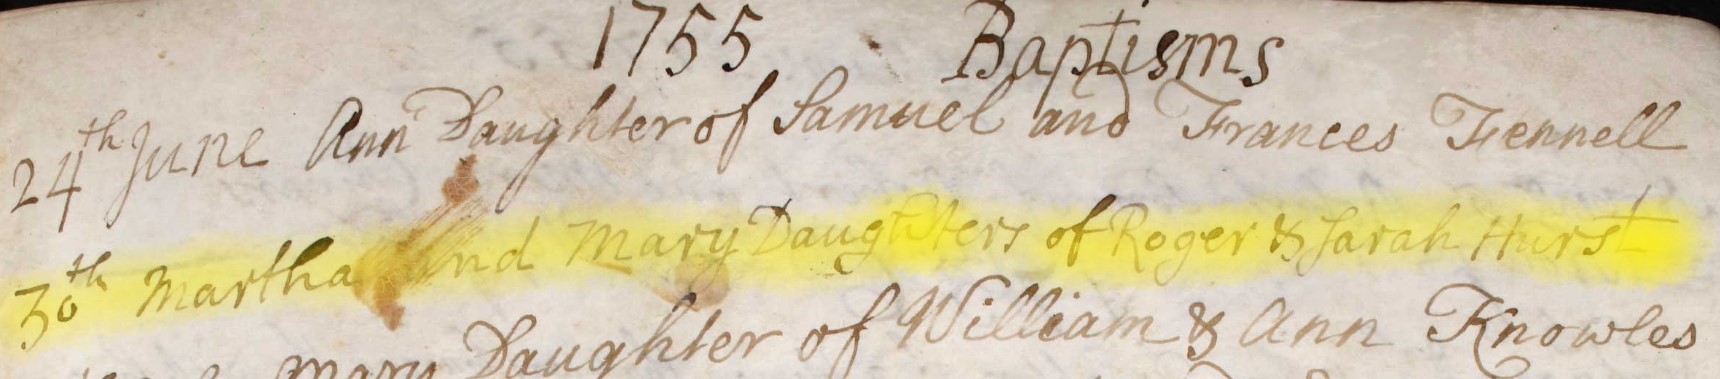 1755 Baptisms
24th June Ann Daughter of Samuel and Frances Fennell
30th Martha and Mary Daughters of Roger & Sarah Hurst
Mary Daughter of William & Ann Knowles